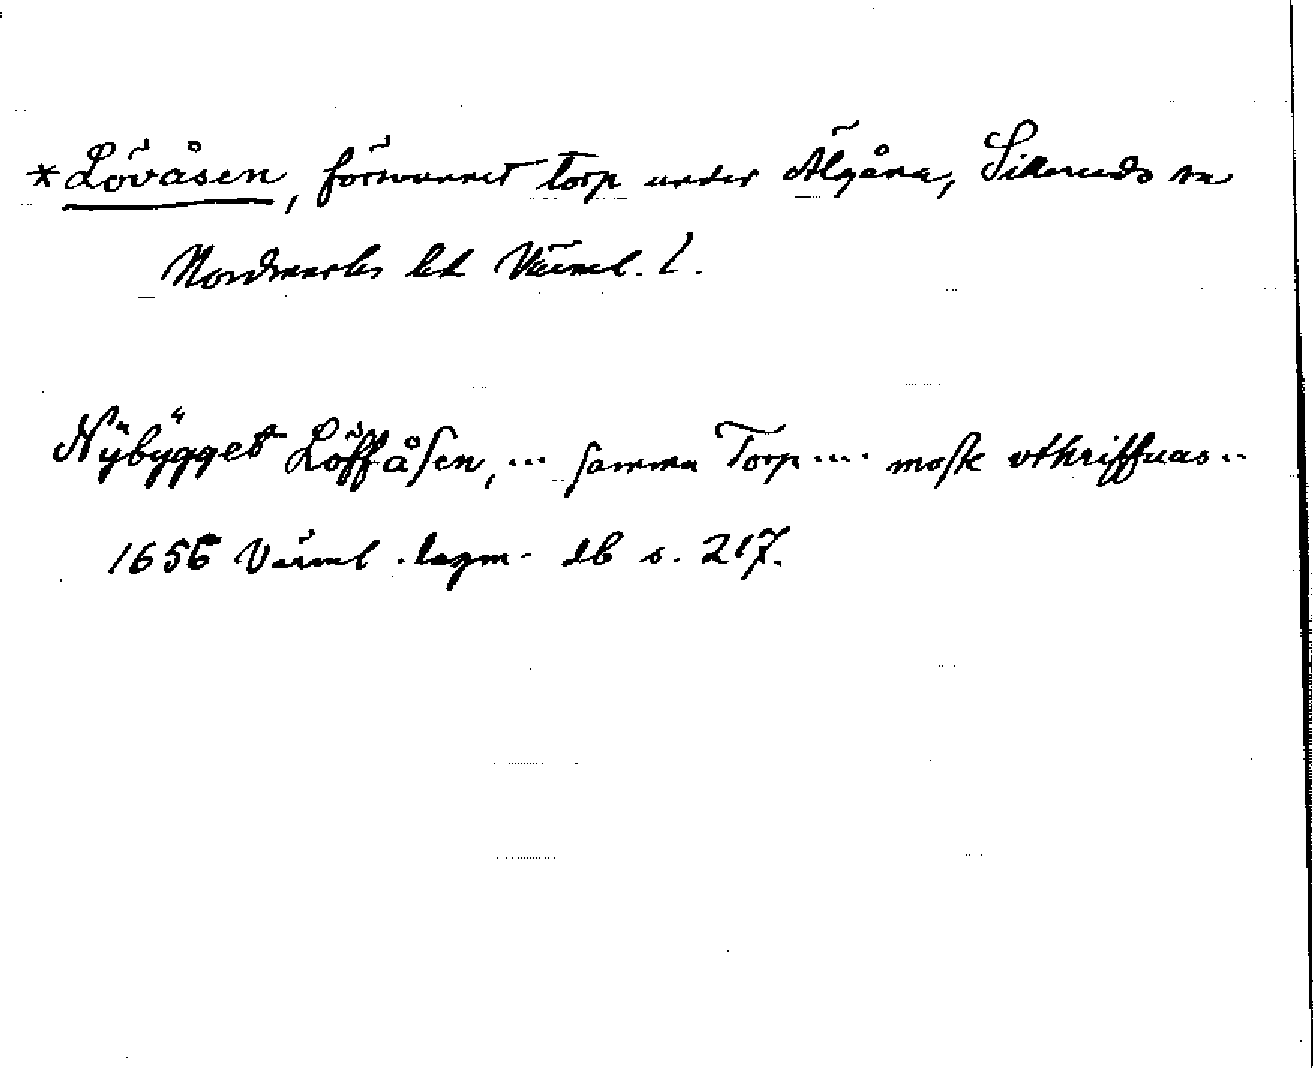 *Lövåsen, försvunnet torp under Älgåna, Silleruds sn
Nordmarks hd Värml. l.
Nÿbÿgget Löffåsen, ... samma Torp .... moste vthriffuas ..
1656 Värml. lagm. db s. 217.